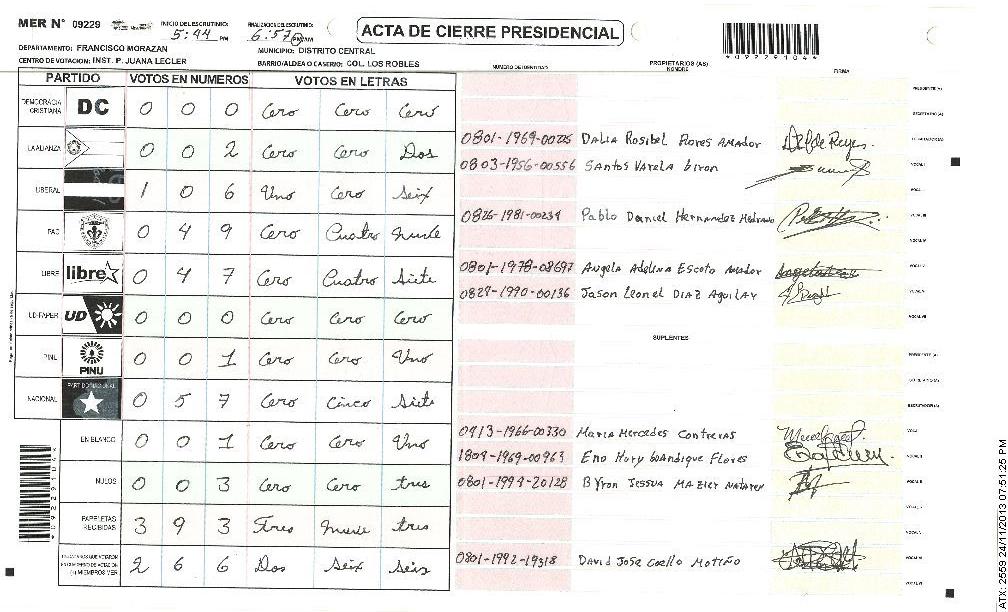 MER N° 09229
INICIO DE ESCRUTINIO: 5:44 PM
FINALIZACION DE ESCRUTINIO: 6:57 PM
ACTA DE CIERRE PRESIDENCIAL
*092291044*
DEPARTAMENTO: FRANCISCO MORAZAN
MUNICIPIO: DISTRITO CENTRAL
CENTRO DE VOTACION: INST. P. JUANA LECLER
BARRIO/ALDEA O CASERIO: COL. LOS ROBLES
NUMERO DE IDENTIDAD
PROPIETARIOS (AS)
NOMBRE
FIRMA
PARTIDO VOTOS EN NUMEROS VOTOS EN LETRAS
DEMOCRACIA CRISTIANA DC 0 0 0 Cero Cero Cero
LA ALIANZA 0 0 2 Cero Cero Dos
LIBERAL 1 0 6 Uno Cero Seix
PAC 0 4 9 Cero Cuatro nueve
LIBRE libre 0 4 7 Cero Cuatro Siete
UD-FAPER UD 0 0 0 Cero Cero Cero
PINU PINU 0 0 1 Cero Cero Uno
NACIONAL PARTIDO NACIONAL 0 5 7 Cero Cinco Siete
EN BLANCO 0 0 1 Cero Cero Uno
NULOS 0 0 3 Cero Cero tres
PAPELETAS RECIBIDAS 3 9 3 Tres nueve tres
2 6 6 Dos Seix Seis
PRESIDENTE (A)
SECRETARIO (A)
0801-1969-00225 Dalia Rosibel Flores Amador
0803-1956-00556 Santos Varela Giron
0826-1981-00234 Pablo Daniel Hernandez Medrano
0801-1978-08697 Angela Adelina Escoto Amador
0827-1990-00136 Jason Leonel DIAZ Aguilar
SUPLENTES
PRESIDENTE (A)
SECRETARIO (A)
0413-1966-00330 Maria Mercedes Contreras
1804-1969-00963 Eno Hury Wandique Flores
0801-1994-20128 Byron Jessua
0801-1992-19318 David Jose Coello Motiño
*092291044*
ATX: 2559 24/11/2013 07:51:25 PM